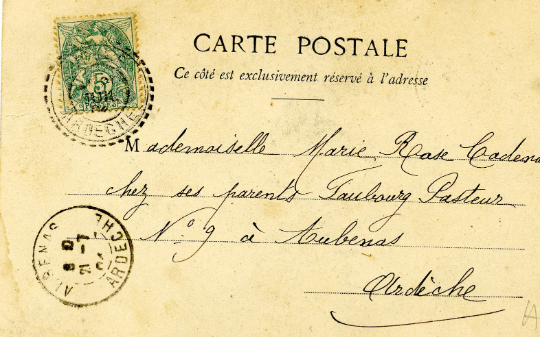 CARTE POSTALE
Ce côté est exclusivement réservé à l'adresse
Mademoiselle Marie Rose Cadena
chez ses parents Faubourg Pasteur
N° 9 à Aubenas
Ardèche
5
ARDECHE
AUBENAS
ARDECHE